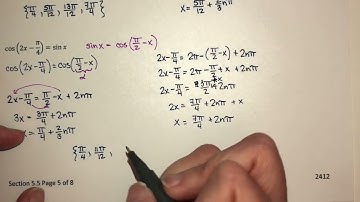 {π/4, 5π/12, 13π/12, 7π/4}
x = 5π/12 + 2/3 nπ
cos(2x − π/4) = sin x
sin x = cos(π/2 − x)
cos(2x − π/4) = cos(π/2 − x)
2x − π/4 = π/2 − x + 2nπ
3x = 3π/4 + 2nπ
x = π/4 + 2/3 nπ
2x − π/4 = 2π − (π/2 − x) + 2nπ
2x − π/4 = 2π − π/2 + x + 2nπ
2x − π/4 = 3π/2 + x + 2nπ
2x = 7π/4 + 2nπ + x
x = 7π/4 + 2nπ
{π/4, 11π/12,
Section 5.5 Page 5 of 8
2412